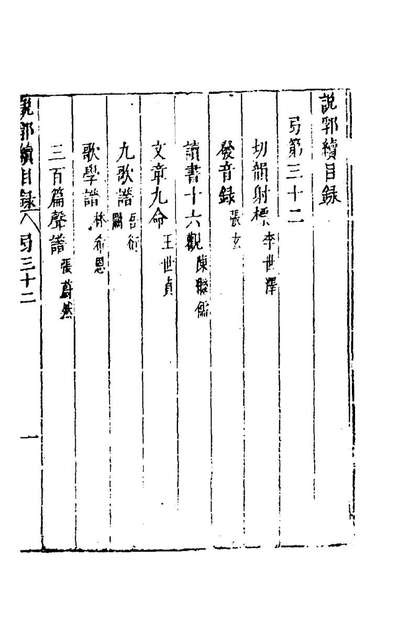 說郛續目錄
弓第三十二
切韻射標 李世澤
發音錄 張位
讀書十六觀 陳繼儒
文章九命 王世貞
九歌譜 闕
歌學譜 林希恩
三百篇聲譜 張蔚然
說郛續目錄 弓三十二 一